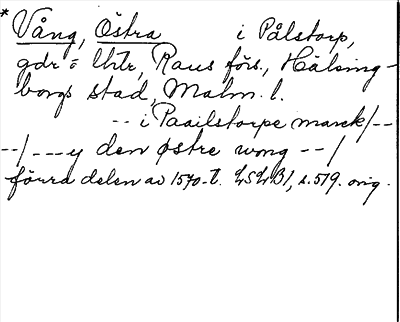 * Vång, Östra i Pålstorp,
gdr = lhtr, Raus förs., Hälsing-
borgs stad, Malm. l.
-- i Paailstorpe marck/--
--/---y den østre wong --/
förra delen av 1570-t. LSLB1, s. 519. orig.